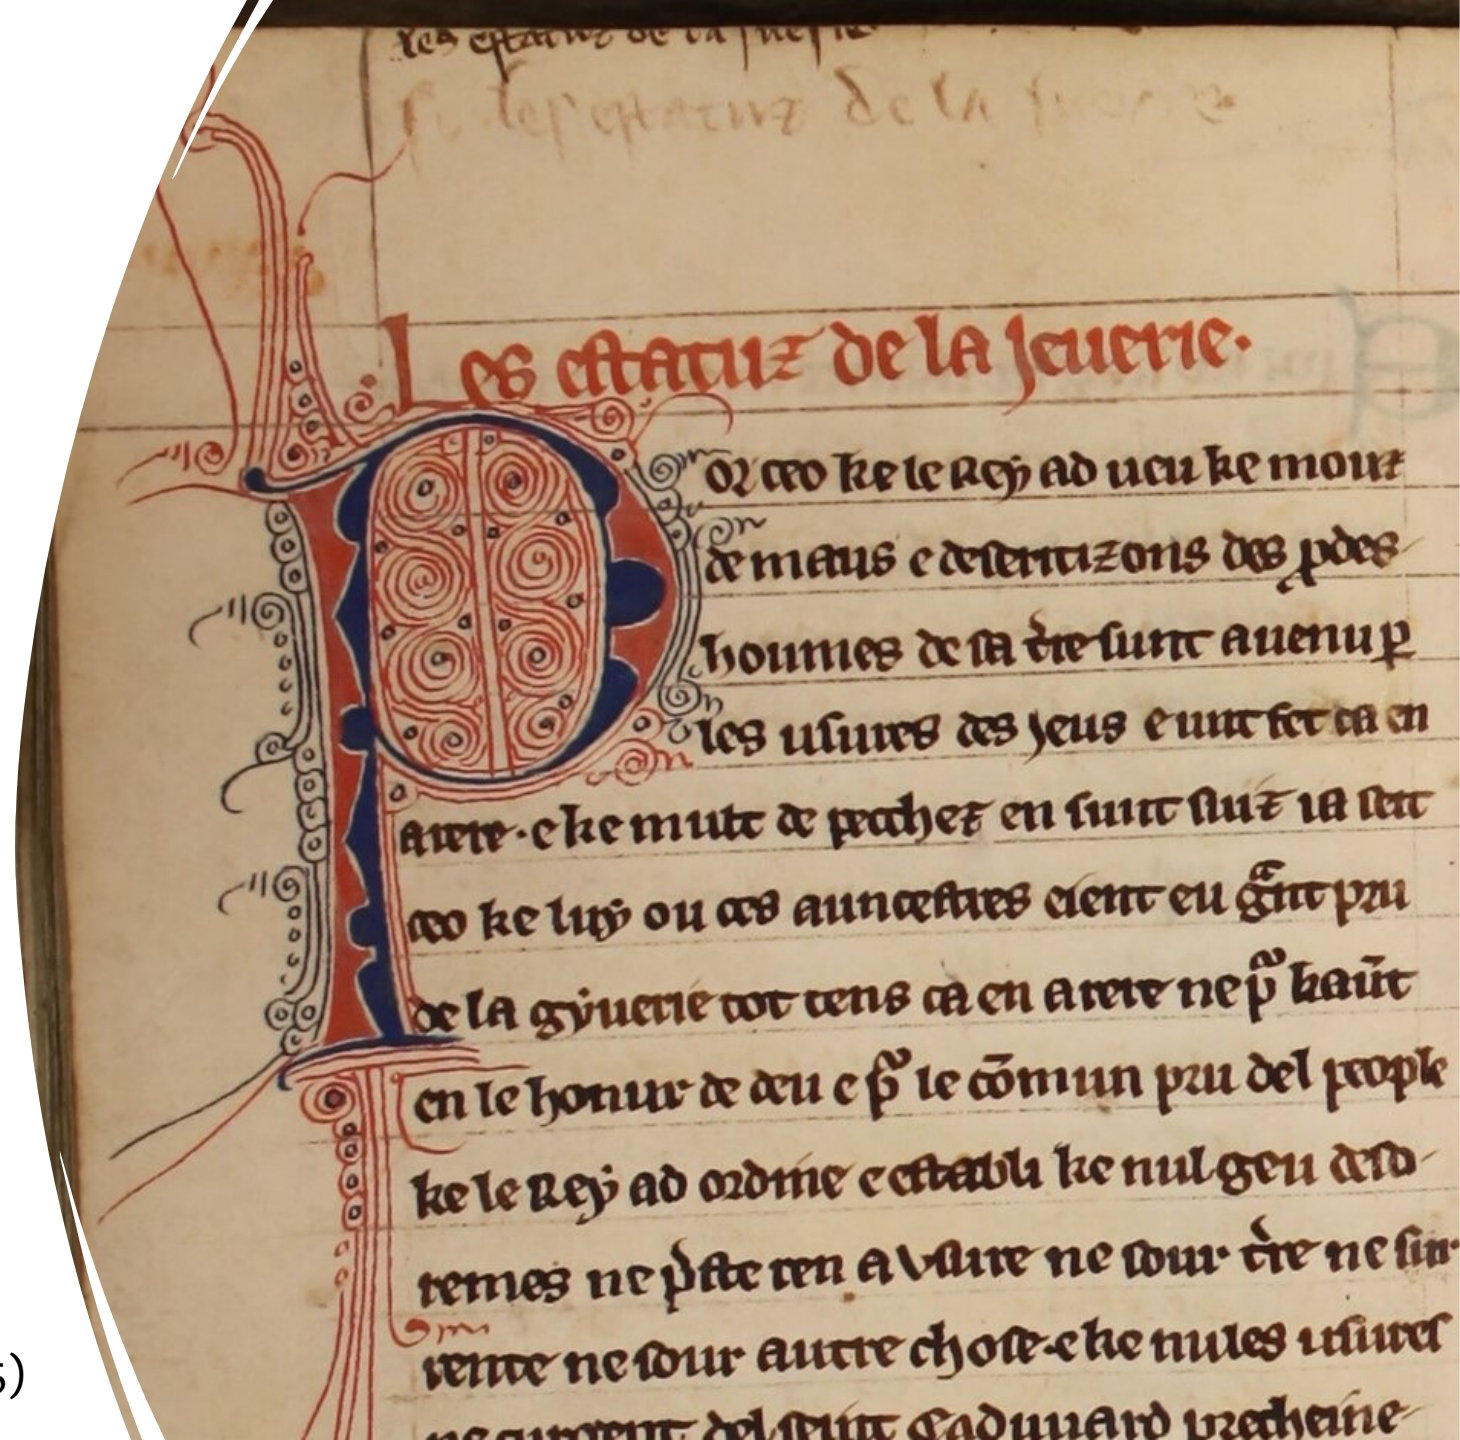 les estatuz de la juerie
les estatuz de la juerie
Les estatuz de la Jeuerie.
Por ceo ke le Rey ad ueu ke mout
de maus e desertizons des pdes
houmes de sa tre sunt auenu p
les usures des Jeus e unt fet ca en
arere. e ke mult de pecchez en sunt suiz ia seit
ceo ke luy ou ces auncestres eient eu gnt pru
de la gyuerie tot tens ca en arere ne p kaut
en le honur de deu e p le comun pru del people
ke le Rey ad ordine e establi ke nul geu deso-
remes ne pste ren a Vsure ne sour tre ne sur
rente ne sour autre chose. e ke nules usures
ne curgent del seint Eadmuard precheine-
s)